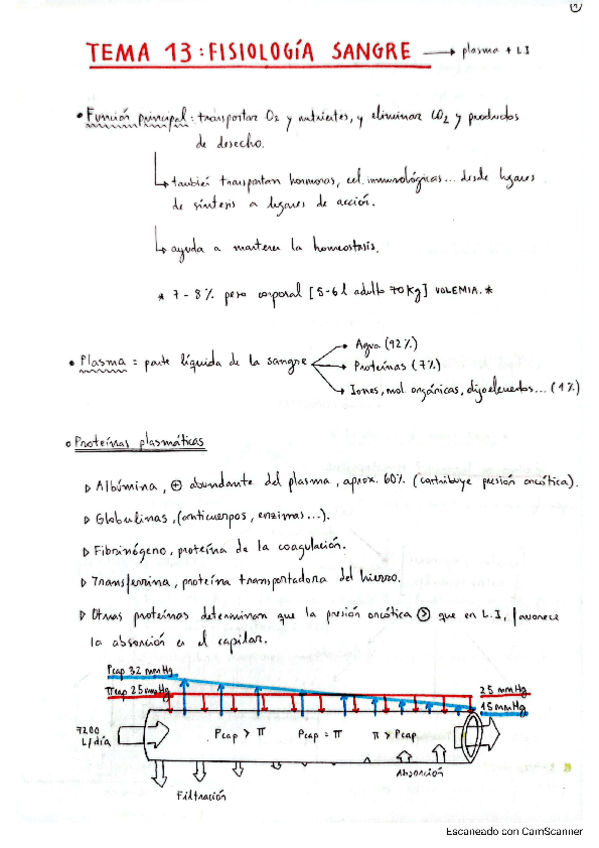 TEMA 13: FISIOLOGÍA SANGRE → plasma + LI
• Función principal: transportar O2 y nutrientes, y eliminar CO2 y productos
de desecho.
↳ también transportan hormonas, cel. inmunológicas... desde lugares
de síntesis a lugares de acción.
↳ ayuda a mantener la homeostasis.
* 7-8% peso corporal [5-6 l adulto 70 Kg] VOLEMIA. *
• Plasma: parte líquida de la sangre
• Agua (92%)
→ Proteínas (7%)
→ Iones, mol. orgánicas, oligoelementos... (1%)
• Proteínas plasmáticas
▷ Albúmina, ⊕ abundante del plasma, aprox. 60% (contribuye presión oncótica).
▷ Globulinas, (anticuerpos, enzimas...).
▷ Fibrinógeno, proteína de la coagulación.
▷ Transferrina, proteína transportadora del hierro.
▷ Otras proteínas determinan que la presión oncótica > que en L.I, favorece
la absorción en el capilar.
Pcap 32 mmHg
πcap 25 mmHg
25 mmHg
15 mmHg
7200
L/día
Pcap > π
Pcap = π
π > Pcap
Absorción
Filtración
Escaneado con CamScanner